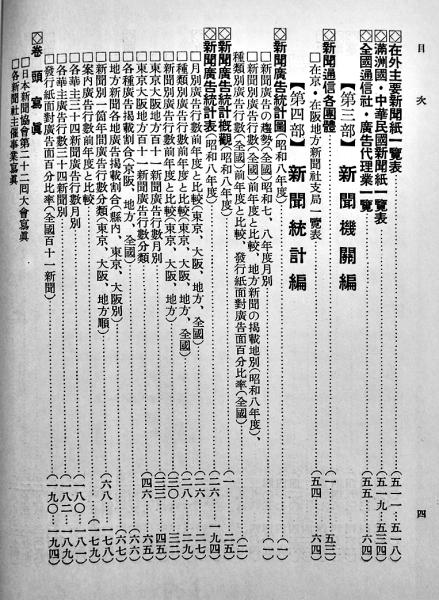 目次
◇在外主要新聞紙一覽表……(五一一—五一八)
◇滿洲國・中華民國新聞紙一覽表……(五一九—五三四)
◇全國通信社・廣告代理業一覽……(五五—六四)
【第三部】 新聞機關編
◇新聞通信各團體……(一—五三)
□在京・在阪地方新聞社支局一覽表……(五四—六四)
【第四部】 新聞統計編
◇新聞廣告統計圖(昭和八年度)
□新聞廣告の趨勢(全國)昭和七、八年度月別……(一)
□新聞廣告行數(全國)前年度と比較、地方新聞の掲載地別(昭和八年度)、
種類別廣告行數(全國)前年度と比較、發行紙面對廣告面百分比率(全國)……(二)
◇新聞廣告統計概觀(昭和八年度)……(一—二五)
◇新聞廣告統計表(昭和八年度)……(二六—一九四)
□月別廣告行數前年度と比較(東京、大阪、地方、全國)……(二六—二七)
□種類別廣告行數前年度と比較(東京、大阪、地方、全國)……(二八—二九)
□新聞別廣告行數前年度と比較(東京、大阪、地方)……(三〇—三二)
□東京大阪地方百十一新聞廣告行數月別……(三三—四五)
□東京大阪地方百十一新聞廣告行數分類……(四六—六五)
□各種廣告掲載割合(京阪、地方、全國)……(六六)
□地方新聞各地廣告掲載割合(縣内、東京、大阪別)……(六七)
□新聞別一箇年間廣告行數分類(東京、大阪、地方順)……(六八—一七八)
□案内廣告行數前年度と比較……(一七九)
□各華主三十四新聞廣告行數月別……(一八〇—一八一)
□各華主廣告行數三十四新聞別……(一八二—一八九)
□發行紙面對廣告面百分比率(全國百十一新聞)……(一九〇—一九四)
◇卷頭寫眞
□日本新聞協會第二十二回大會寫眞
□各新聞社主催事業寫眞
四